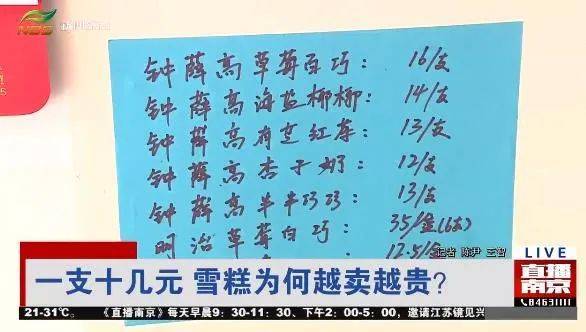 NBS
钟薛高草莓白巧： 16/支
钟薛高海盐椰椰： 14/支
钟薛高有芝红莓： 13/支
钟薛高杏子奶： 12/支
钟薛高牛牛巧巧： 13/支
明治草莓白巧： 35/盒(6支)
12.5/盒
记者 陈尹 王哲
一支十几元 雪糕为何越卖越贵？
LIVE
直播南京
84631111
21-31℃。 《直播南京》每天早晨9：30-11：30、下午2：00-5：00，邀请江苏镜见兴